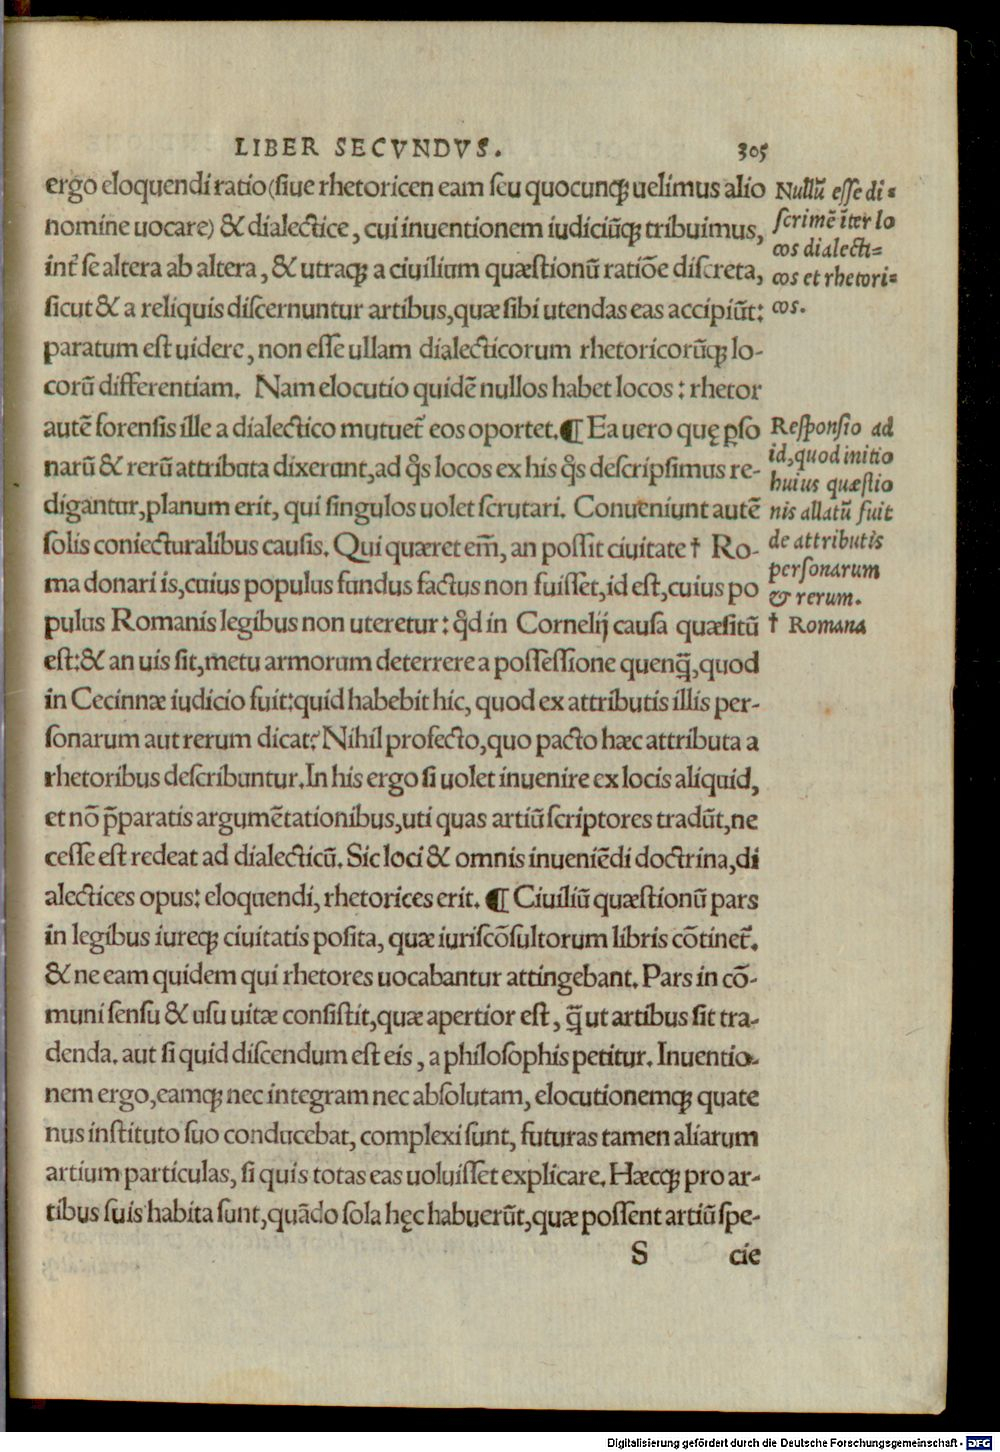 LIBER SECVNDVS. 305
ergo eloquendi ratio (siue rhetoricen eam seu quocunq; uelimus alio
nomine uocare) & dialectice, cui inuentionem iudiciũq; tribuimus,
inť se altera ab altera, & utraq; a ciuilium quæstionũ ratiõe discreta,
sicut & a reliquis discernuntur artibus, quæ sibi utendas eas accipiũt:
paratum est uidere, non esse ullam dialecticorum rhetoricorũq; lo-
corũ differentiam. Nam elocutio quidẽ nullos habet locos: rhetor
autẽ forensis ille a dialectico mutueť eos oportet. ¶ Ea uero quę ꝑso
narũ & rerũ attributa dixerunt, ad q̃s locos ex his q̃s descripsimus re-
digantur, planum erit, qui singulos uolet scrutari. Conueniunt autẽ
solis coniecturalibus causis. Qui quæret em̃, an possit ciuitate † Ro-
ma donari is, cuius populus fundus factus non fuisset, id est, cuius po
pulus Romanis legibus non uteretur: q̃d in Cornelij causa quæsitũ
est: & an uis sit, metu armorum deterrere a possessione quenq̃, quod
in Cecinnæ iudicio fuit: quid habebit hic, quod ex attributis illis per-
sonarum aut rerum dicat? Nihil profecto, quo pacto hæc attributa a
rhetoribus describuntur. In his ergo si uolet inuenire ex locis aliquid,
et nõ p̃paratis argumẽtationibus, uti quas artiũ scriptores tradũt, ne
cesse est redeat ad dialecticũ. Sic loci & omnis inueniẽdi doctrina, di
alectices opus: eloquendi, rhetorices erit. ¶ Ciuiliũ quæstionũ pars
in legibus iureq; ciuitatis posita, quæ iuriscõsultorum libris cõtineť.
& ne eam quidem qui rhetores uocabantur attingebant. Pars in cõ-
muni sensu & usu uitæ consistit, quæ apertior est, q̃ ut artibus sit tra-
denda. aut si quid discendum est eis, a philosophis petitur. Inuentio-
nem ergo, eamq; nec integram nec absolutam, elocutionemq; quate
nus instituto suo conducebat, complexi sunt, futuras tamen aliarum
artium particulas, si quis totas eas uoluisset explicare. Hæcq; pro ar-
tibus suis habita sunt, quãdo sola hęc habuerũt, quæ possent artiũ spe-
S cie
Nullũ esse di-
scrimẽ iter lo
cos dialecti-
cos et rhetori-
cos.
Responsio ad
id, quod initio
huius quæstio
nis allatũ fuit
de attributis
personarum
& rerum.
† Romana
Digitalisierung gefördert durch die Deutsche Forschungsgemeinschaft - DFG